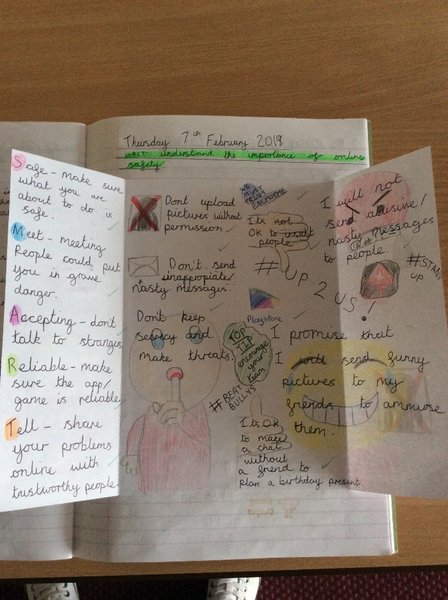 Thursday 7th February 2018
WALT: understand the importance of online
safety.
Safe - make sure
what you are
about to do is
safe.
Meet - meeting
people could put
you in grave
danger.
Accepting - don't
talk to strangers
Reliable - make
sure the app/
game is reliable
Tell - share
your problems
online with
trustworthy people.
Dont upload
pictures without
permission.
Don't send
inappropiate
nasty messages.
Don't keep
secrecy and
make threats.
WE
MUST
It is not
OK to insult
people
# UP
2 US!
Playstore
TOP
TIP
encourage
your
team
#BEAT
BULLYS
It is Ok
to make
a chat
without
a friend to
plan a birthday present.
I will not
send abusive/
nasty messages
to people.
#STAND
UP
I promise that
I will send funny
pictures to my
friends to ammuse
them.